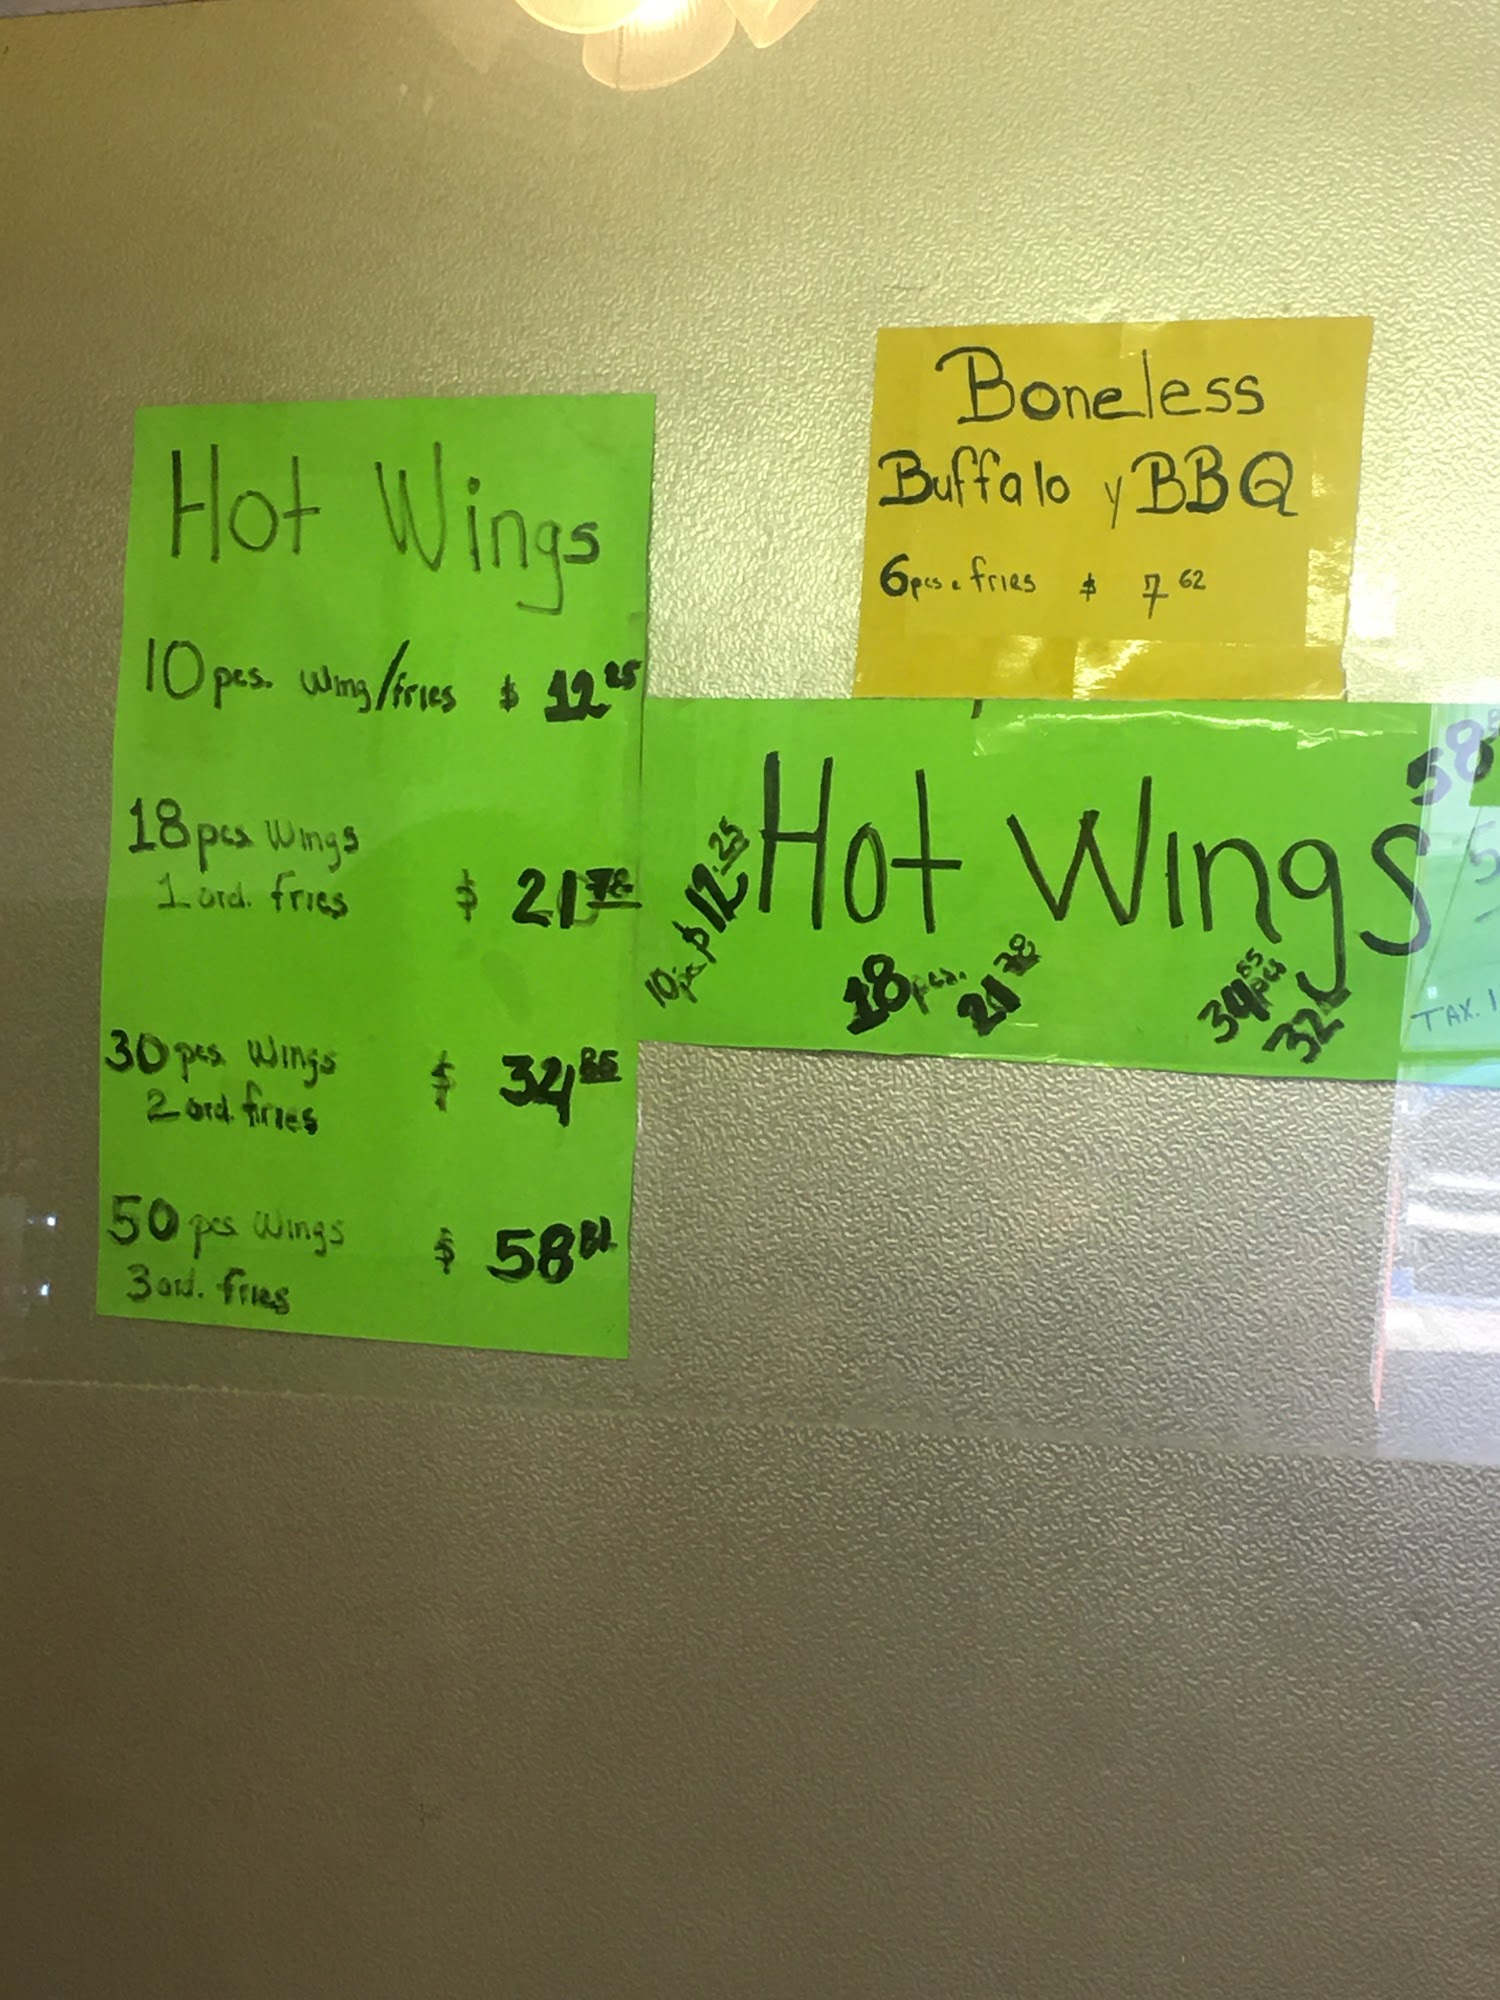 Hot Wings
10 pcs. Wing/fries $ 12 25
18 pcs. Wings
1 ord. fries $ 21 78
30 pcs. Wings
2 ord. fries $ 34 85
50 pcs Wings
3 ord. fries $ 58 81
Boneless
Buffalo y BBQ
6 pcs fries $ 7 62
Hot Wings
10 pc $12.25
18 pcs.
21 78
pcs
32
58
TAX.